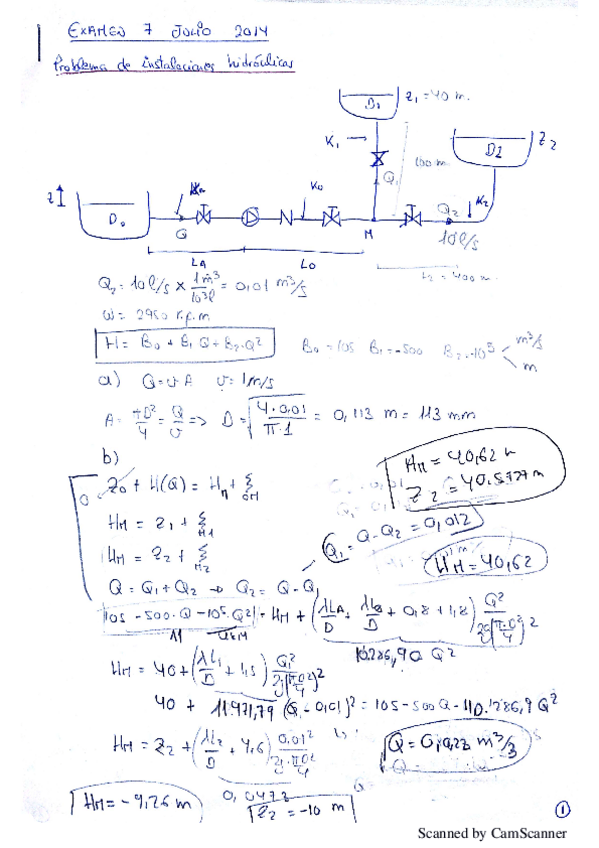 EXAMEN 7 JULIO 2014
Problema de instalaciones hidráulicas
D₁ z₁ = 40 m.
K₁ 100 m D2 Z₂
Q₁
Z D₀ K₀ Q₂ K₂
G M 10 l/s
LA L0 L₂ = 400 m.
Q₂ = 10 l/s × 1 m³/10³ l = 0,01 m³/s
ω = 2950 r.p.m
H = B₀ + B₁ Q + B₂ Q² B₀ = 105 B₁ = -500 B₂ -10⁵ m³/s m
a) Q = v A v = 1 m/s
A = πD²/4 = Q/v => D = √(4·0,01/π·1) = 0,113 m = 113 mm
b)
Z₀ + H(Q) = HM + ξ0M
HM = 40,62 m
Z₂ = 40,5727 m
HM = z₁ + ξM1
Q₁ = Q - Q₂ = 0,012
HM = z₂ + ξM2
HM = 40,62
Q = Q₁ + Q₂ → Q₂ = Q - Q₁
105 - 500·Q - 10⁵·Q² = HM + (λLA/D + λL0/D + 0,8 + 1,8) Q²/2g(π·D²/4)²
10.286,90 Q²
HM = 40 + (λL₁/D + 1,5) Q₁²/2g(π·D²/4)²
40 + 11.971,79 (Q - 0,01)² = 105 - 500 Q - 110.286,9 Q²
HM = Z₂ + (λL₂/D + 4,6) 0,01²/2g(π·D²/4)²
Q = 0,022 m³/s
HM = -9,26 m 0,0473 Z₂ = -10 m
1
Scanned by CamScanner